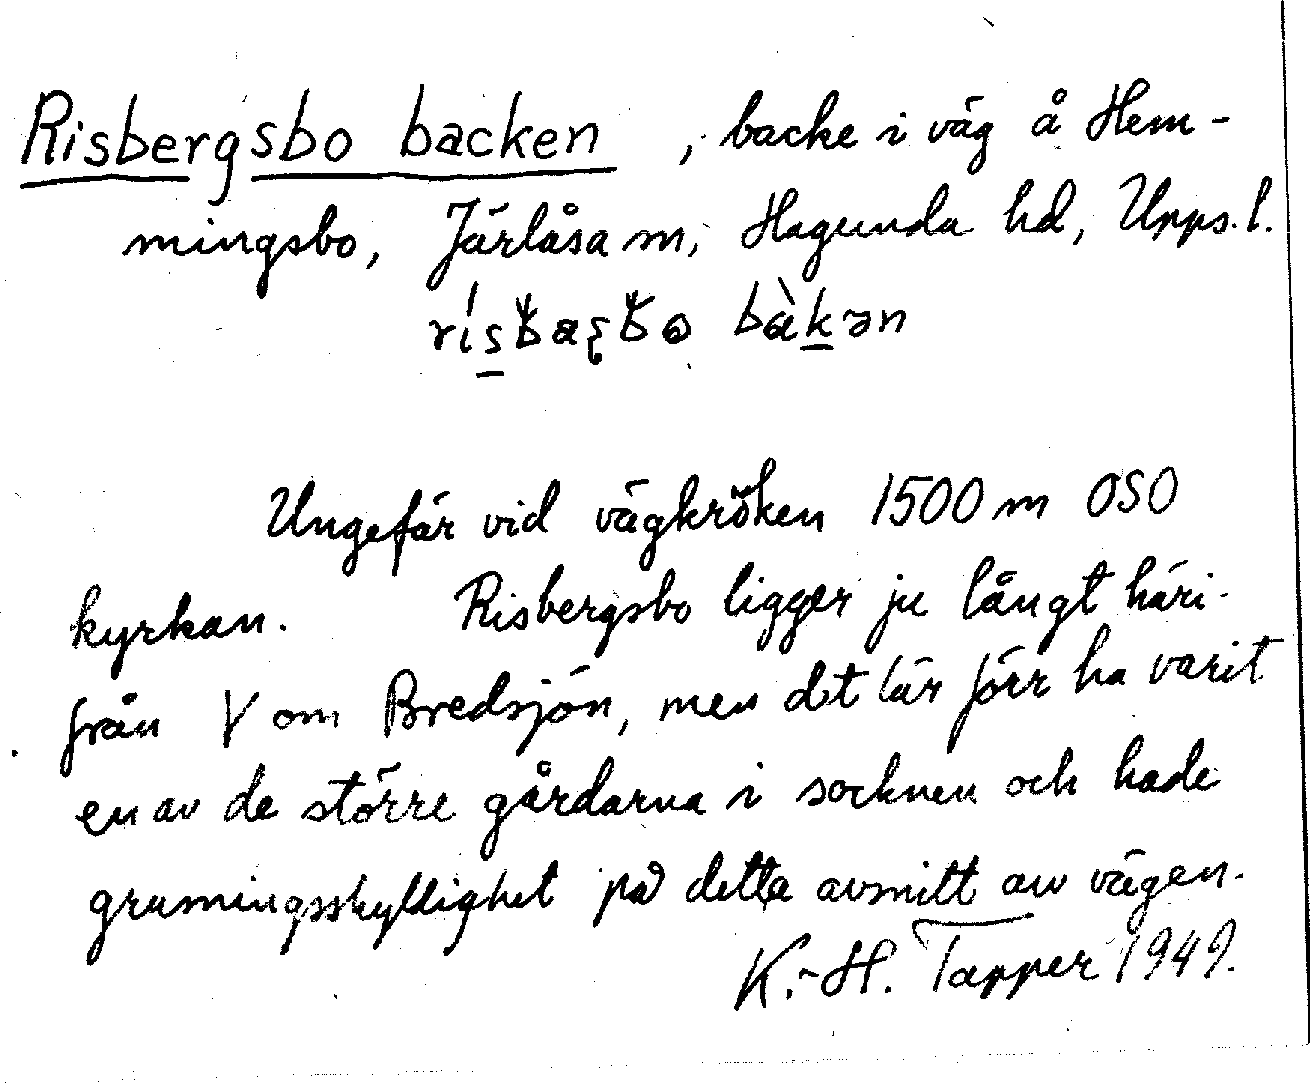 Risbergsbo backen, backe i väg å Hem-
mingsbo, Järlåsa sn, Hagunda hd, Upps. l.
bàkən
Ungefär vid vägkröken 1500 m OSO
kyrkan. Risbergsbo ligger ju långt häri-
från V om Bredsjön, men det lär förr ha varit
en av de större gårdarna i socknen och hade
grusningsskyllighet på detta avsnitt av vägen.
K.-H. Tapper 1949.